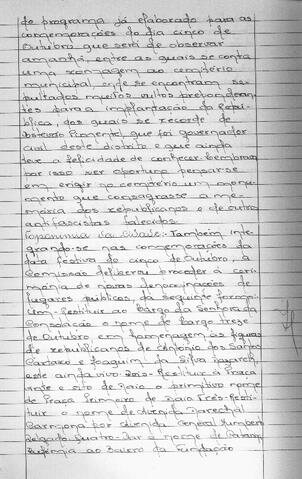 do programa já elaborado para as
comemorações do dia cinco de
Outubro que será de observar
amanhã, entre as quais se conta
uma romagem ao cemitério
municipal, onde se encontram se-
pultados muitos vultos preponderan-
tes para a implantação da Repú-
blica, dos quais se recorda de
Pimentel, que foi governador
civil deste distrito e que ainda
teve a felicidade de conhecer. Lembrou
por isso ser oportuno pensar-se
em erigir no cemitério um monu-
mento que consagrasse a me-
mória dos republicanos e de outros
antifascistas falecidos.
Toponímia da Cidade: Também inte-
grando-se nas comemorações da
data festiva do cinco de Outubro, a
Comissão deliberou proceder à ceri-
mónia de novas denominações de
lugares públicos, da seguinte forma:
Um - Restituir ao Largo da Senhora da
Consolação o nome de Largo treze
de Outubro, em homenagem às figuras
de republicanos de António dos Santos
Cartaxo e Joaquim da Silva
este ainda vivo. Dois - Restituir à Praça
vinte e oito de Maio o primitivo nome
de Praça Primeiro de Maio. Três - Resti-
tuir o nome de Avenida Marechal
Carmona por Avenida General Humberto
Delgado. Quatro - Dar o nome de Catarina
Eufémia ao Bairro da Fundação